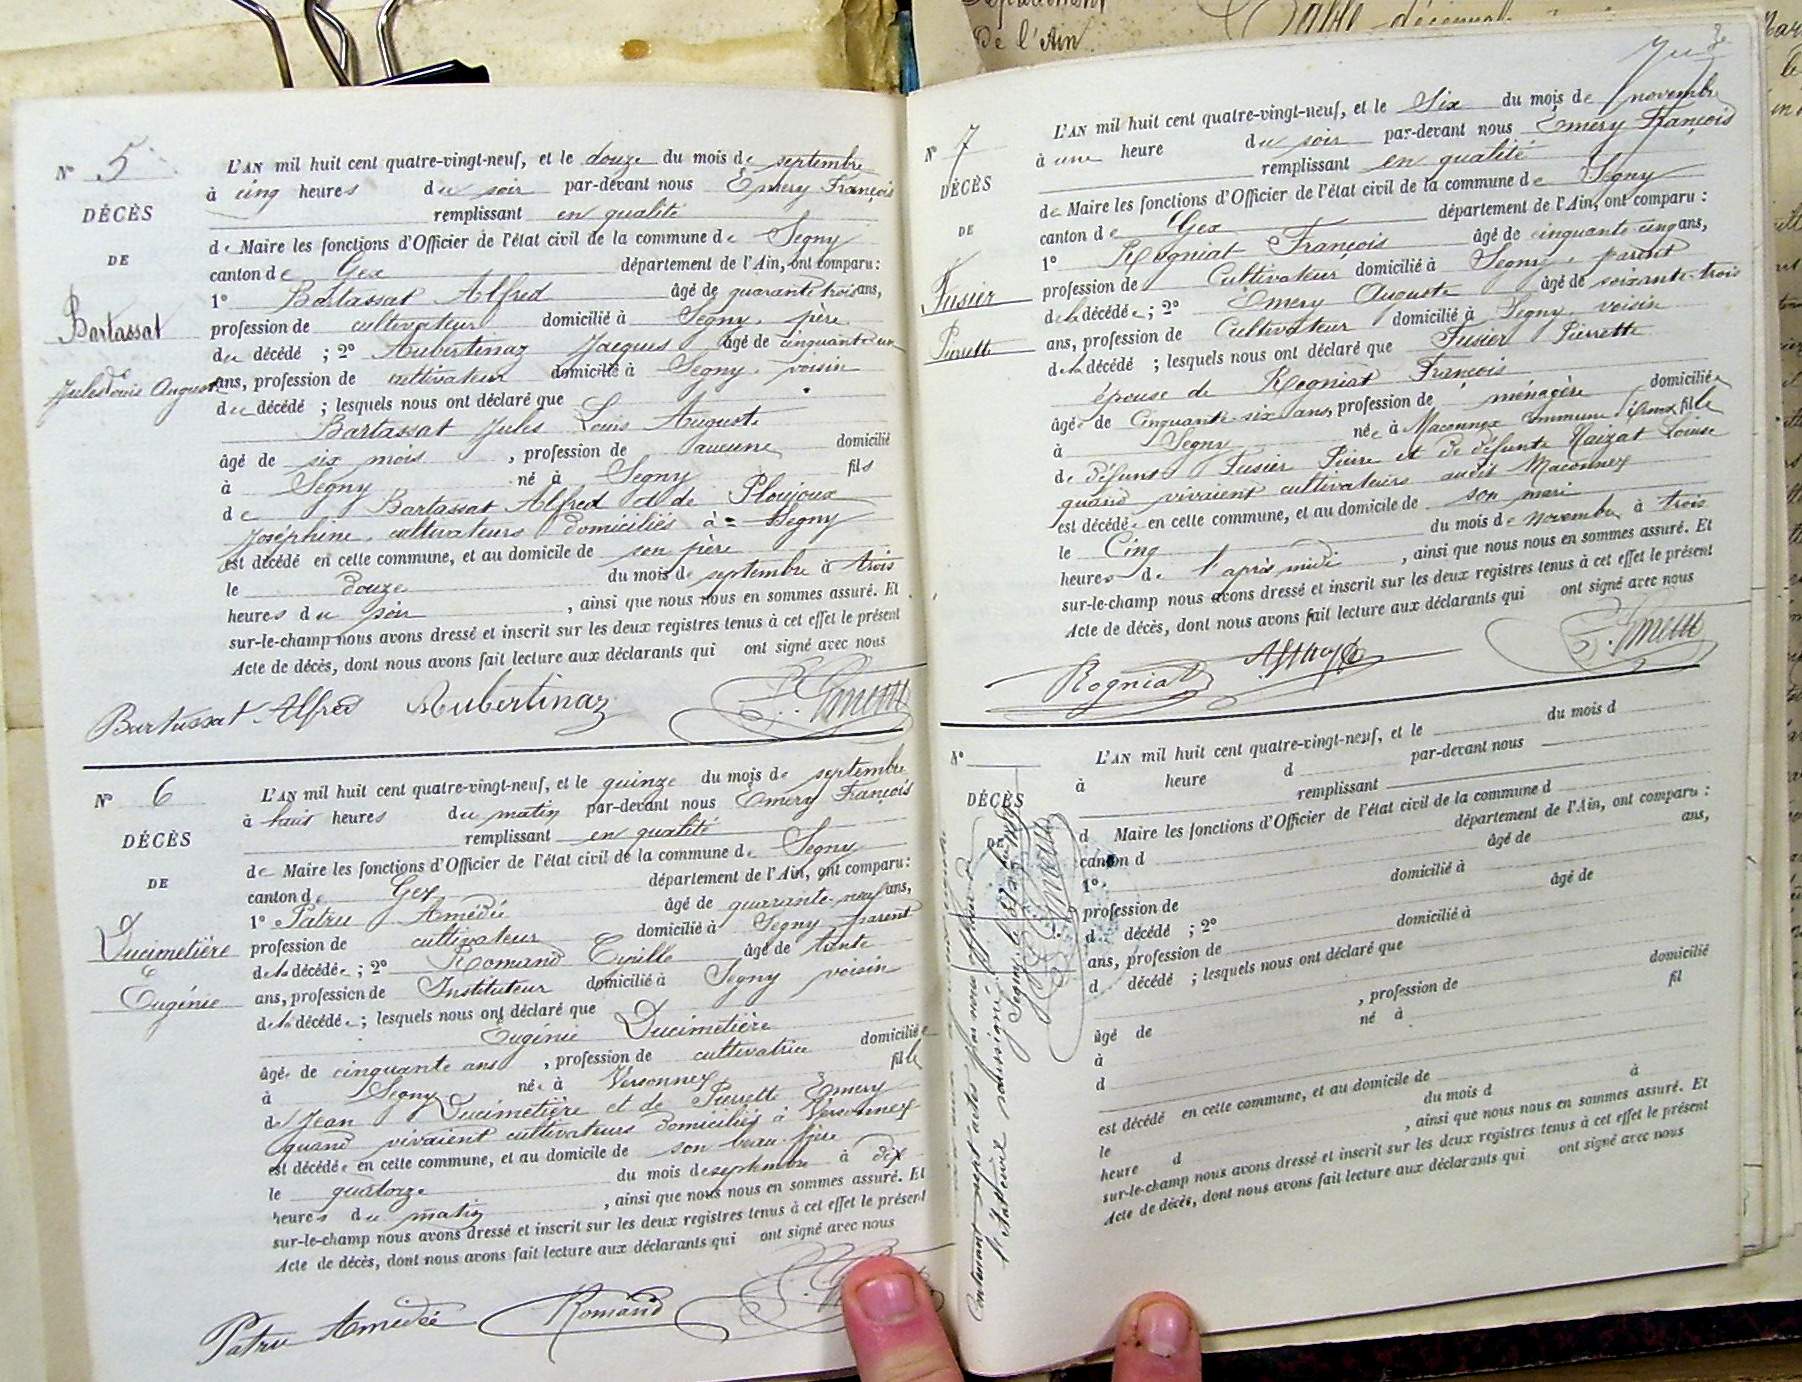 Département
De l'Ain
Table décennale
N° 5
DÉCÈS
DE
Bartassat
Jules Louis Auguste
L'AN mil huit cent quatre-vingt-neuf, et le douze du mois de septembre
à cinq heures du soir par-devant nous Emery François
remplissant en qualité
de Maire les fonctions d'Officier de l'état civil de la commune de Segny
canton de Gex département de l'Ain, ont comparu :
1° Bartassat Alfred âgé de quarante trois ans,
profession de cultivateur domicilié à Segny, père
du décédé ; 2° Aubertinaz Jacques âgé de cinquante un
ans, profession de cultivateur domicilié à Segny, voisin
du décédé ; lesquels nous ont déclaré que
Bartassat Jules Louis Auguste
âgé de six mois , profession de aucune domicilié
à Segny né à Segny fils
de Bartassat Alfred et de Ploujoux
Joséphine, cultivateurs domiciliés à Segny
est décédé en cette commune, et au domicile de son père
le douze du mois de septembre à trois
heures du soir , ainsi que nous nous en sommes assuré. Et
sur-le-champ nous avons dressé et inscrit sur les deux registres tenus à cet effet le présent
Acte de décès, dont nous avons fait lecture aux déclarants qui ont signé avec nous
Bartassat Alfred Aubertinaz F. Emery
N° 6
DÉCÈS
DE
Ducimetière
Eugénie
L'AN mil huit cent quatre-vingt-neuf, et le quinze du mois de septembre
à huit heures du matin par-devant nous Emery François
remplissant en qualité
de Maire les fonctions d'Officier de l'état civil de la commune de Segny
canton de Gex département de l'Ain, ont comparu :
1° Patru Amédée âgé de quarante-neuf ans,
profession de cultivateur domicilié à Segny parent
de la décédée ; 2° Romand Cyrille âgé de trente
ans, profession de Instituteur domicilié à Segny voisin
de la décédée ; lesquels nous ont déclaré que
Eugénie Ducimetière
âgée de cinquante ans , profession de cultivatrice domiciliée
à Segny née à Versonnex fille
de Jean Ducimetière et de Pierrette Emery
quand vivaient cultivateurs domiciliés à Versonnex
est décédée en cette commune, et au domicile de son beau-frère
le quatorze du mois de septembre à dix
heures du matin , ainsi que nous nous en sommes assuré. Et
sur-le-champ nous avons dressé et inscrit sur les deux registres tenus à cet effet le présent
Acte de décès, dont nous avons fait lecture aux déclarants qui ont signé avec nous
Patru Amédée Romand
N° 7
DÉCÈS
DE
Fusier
Pierrette
L'AN mil huit cent quatre-vingt-neuf, et le Six du mois de novembre
à une heure du soir par-devant nous Emery François
remplissant en qualité
de Maire les fonctions d'Officier de l'état civil de la commune de Segny
canton de Gex département de l'Ain, ont comparu :
1° Rogniat François âgé de cinquante-cinq ans,
profession de Cultivateur domicilié à Segny, parent
de la décédée ; 2° Emery Auguste âgé de soixante-trois
ans, profession de Cultivateur domicilié à Segny, voisin
de la décédée ; lesquels nous ont déclaré que Fusier Pierrette
épouse de Rogniat François
âgée de Cinquante-six ans, profession de ménagère domiciliée
à Segny née à Maconnex commune d'Ornex fille
de défunt Fusier Pierre et de défunte Naizat Louise
quand vivaient cultivateurs audit Maconnex
est décédée en cette commune, et au domicile de son mari
le Cinq du mois de novembre à trois
heures de l'après midi , ainsi que nous nous en sommes assuré. Et
sur-le-champ nous avons dressé et inscrit sur les deux registres tenus à cet effet le présent
Acte de décès, dont nous avons fait lecture aux déclarants qui ont signé avec nous
Rogniat F. Emery
N°
DÉCÈS
DE
L'AN mil huit cent quatre-vingt-neuf, et le du mois d
à heure d par-devant nous
remplissant
d Maire les fonctions d'Officier de l'état civil de la commune d
canton d département de l'Ain, ont comparu :
1° âgé de ans,
profession de domicilié à
d décédé ; 2° âgé de
ans, profession de domicilié à
d décédé ; lesquels nous ont déclaré que
âgé de , profession de domicilié
à né à fil
d
est décédé en cette commune, et au domicile de
le du mois d à
heure d , ainsi que nous nous en sommes assuré. Et
sur-le-champ nous avons dressé et inscrit sur les deux registres tenus à cet effet le présent
Acte de décès, dont nous avons fait lecture aux déclarants qui ont signé avec nous
Contenant sept actes par nous
soussigné
Segny, le